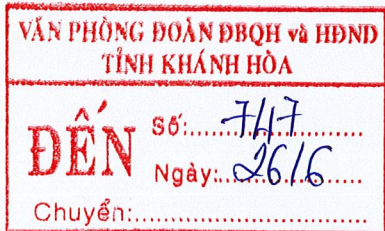 VĂN PHÒNG ĐOÀN ĐBQH và HĐND
TỈNH KHÁNH HÒA
ĐẾN
Số:.....747.....
Ngày:.....26/6.....
Chuyển:.....